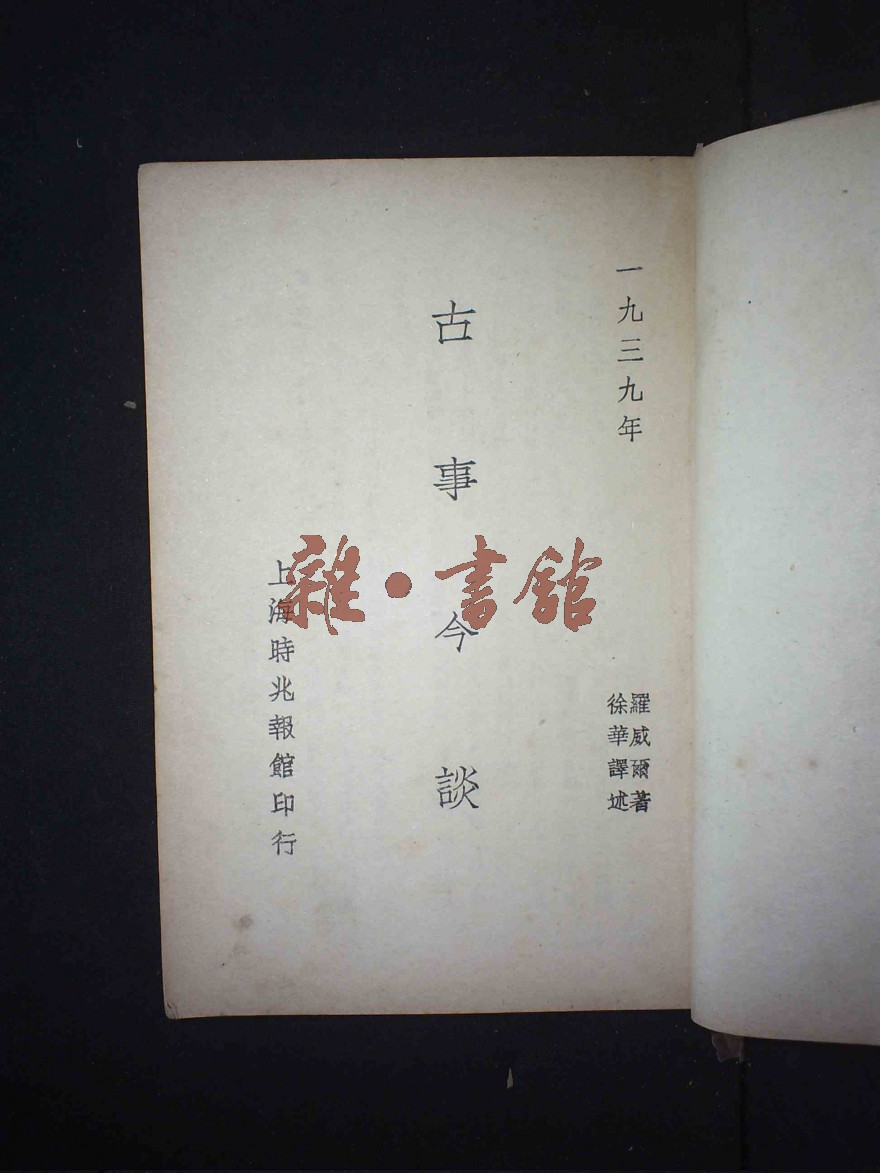 一九三九年
羅威爾著
徐華譯述
古事今談
上海時兆報館印行
雜·書館